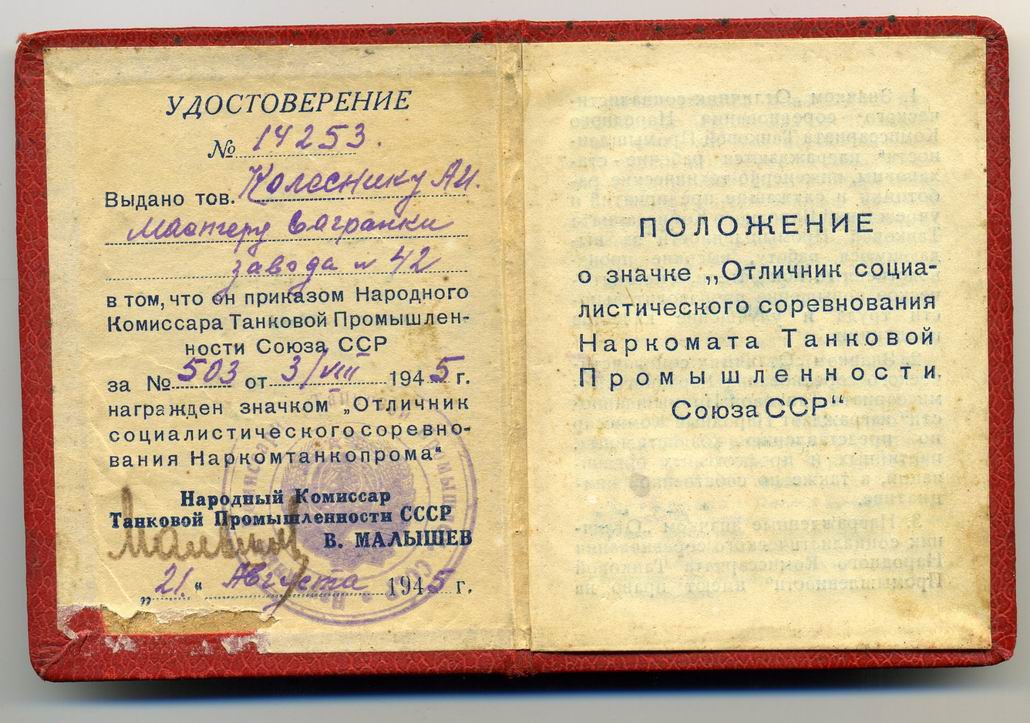 УДОСТОВЕРЕНИЕ
№ 14253.
Выдано тов. Колеснику А.И.
мастеру вагранки
завода № 42
в том, что он приказом Народного
Комиссара Танковой Промышлен-
ности Союза ССР
за № 503 от 3/VIII 1945 г.
награжден значком „Отличник
социалистического соревно-
вания Наркомтанкопрома“
Народный Комиссар
Танковой Промышленности СССР
Малышев
В. МАЛЫШЕВ
„21“ Августа 1945 г.
ПОЛОЖЕНИЕ
о значке „Отличник социа-
листического соревнования
Наркомата Танковой
Промышленности
Союза ССР“